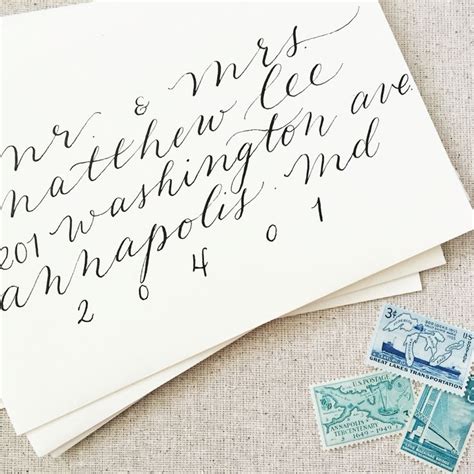 mr. & mrs.
matthew lee
201 washington ave.
annapolis. md
20401
3¢
U.S.
GREAT LAKES TRANSPORTATION
U.S. POSTAGE
ANNAPOLIS
TERCENTENARY
1649-1949
3¢